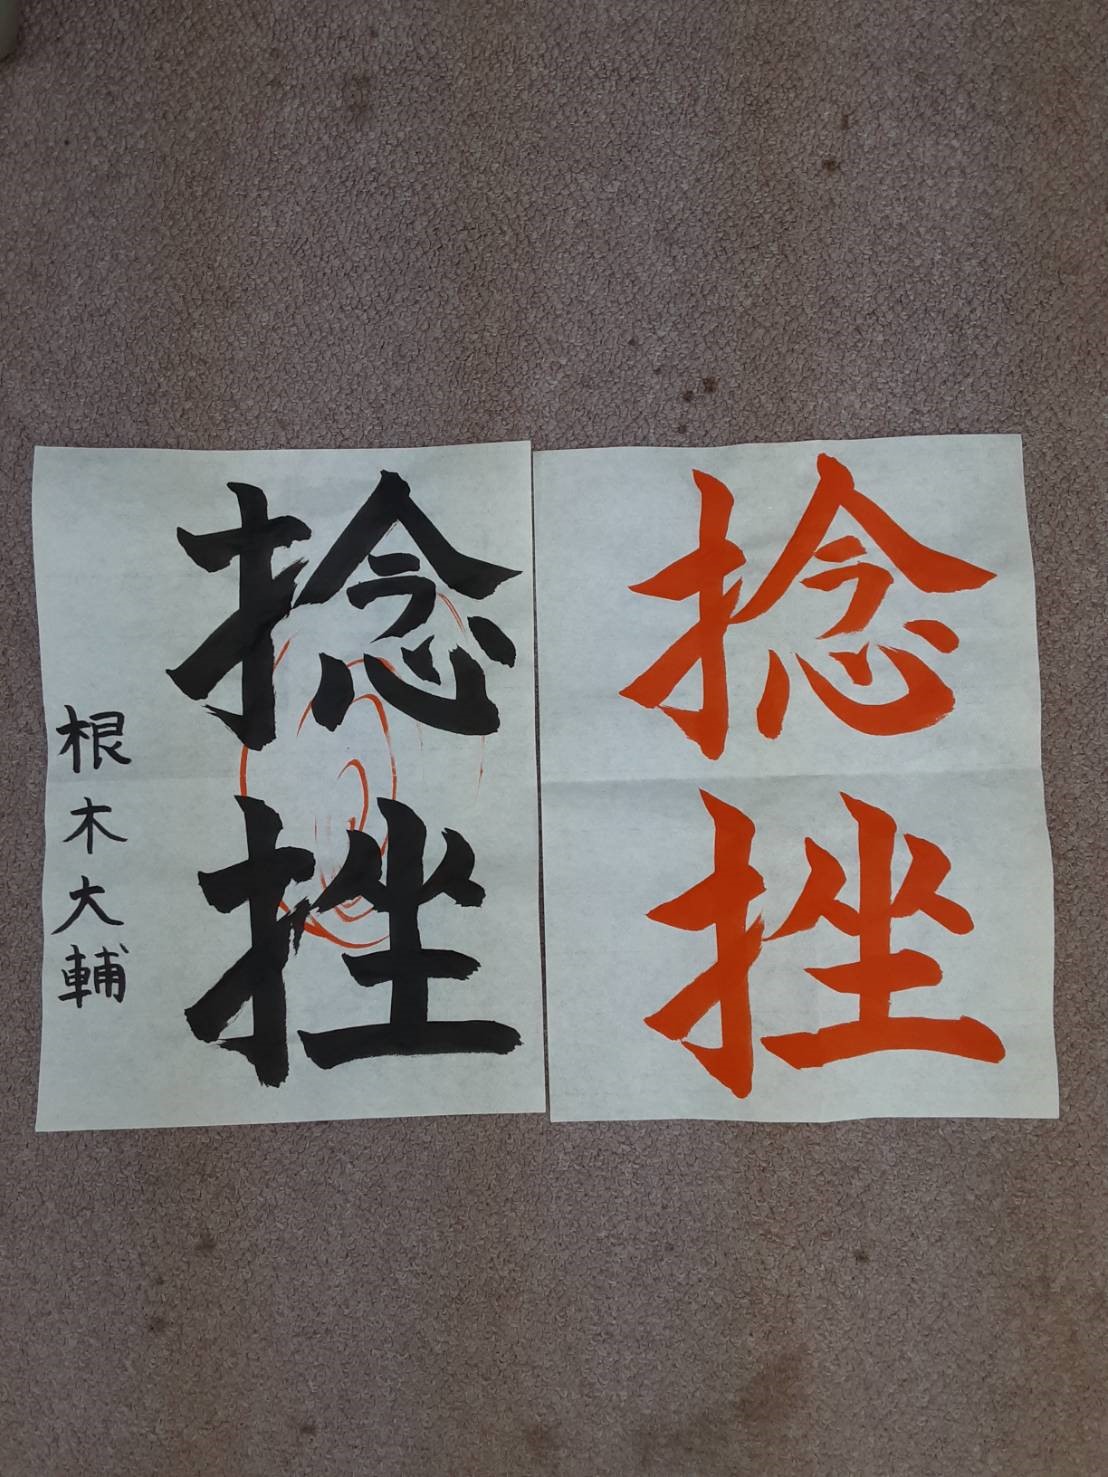 捻挫
根木大輔
捻挫